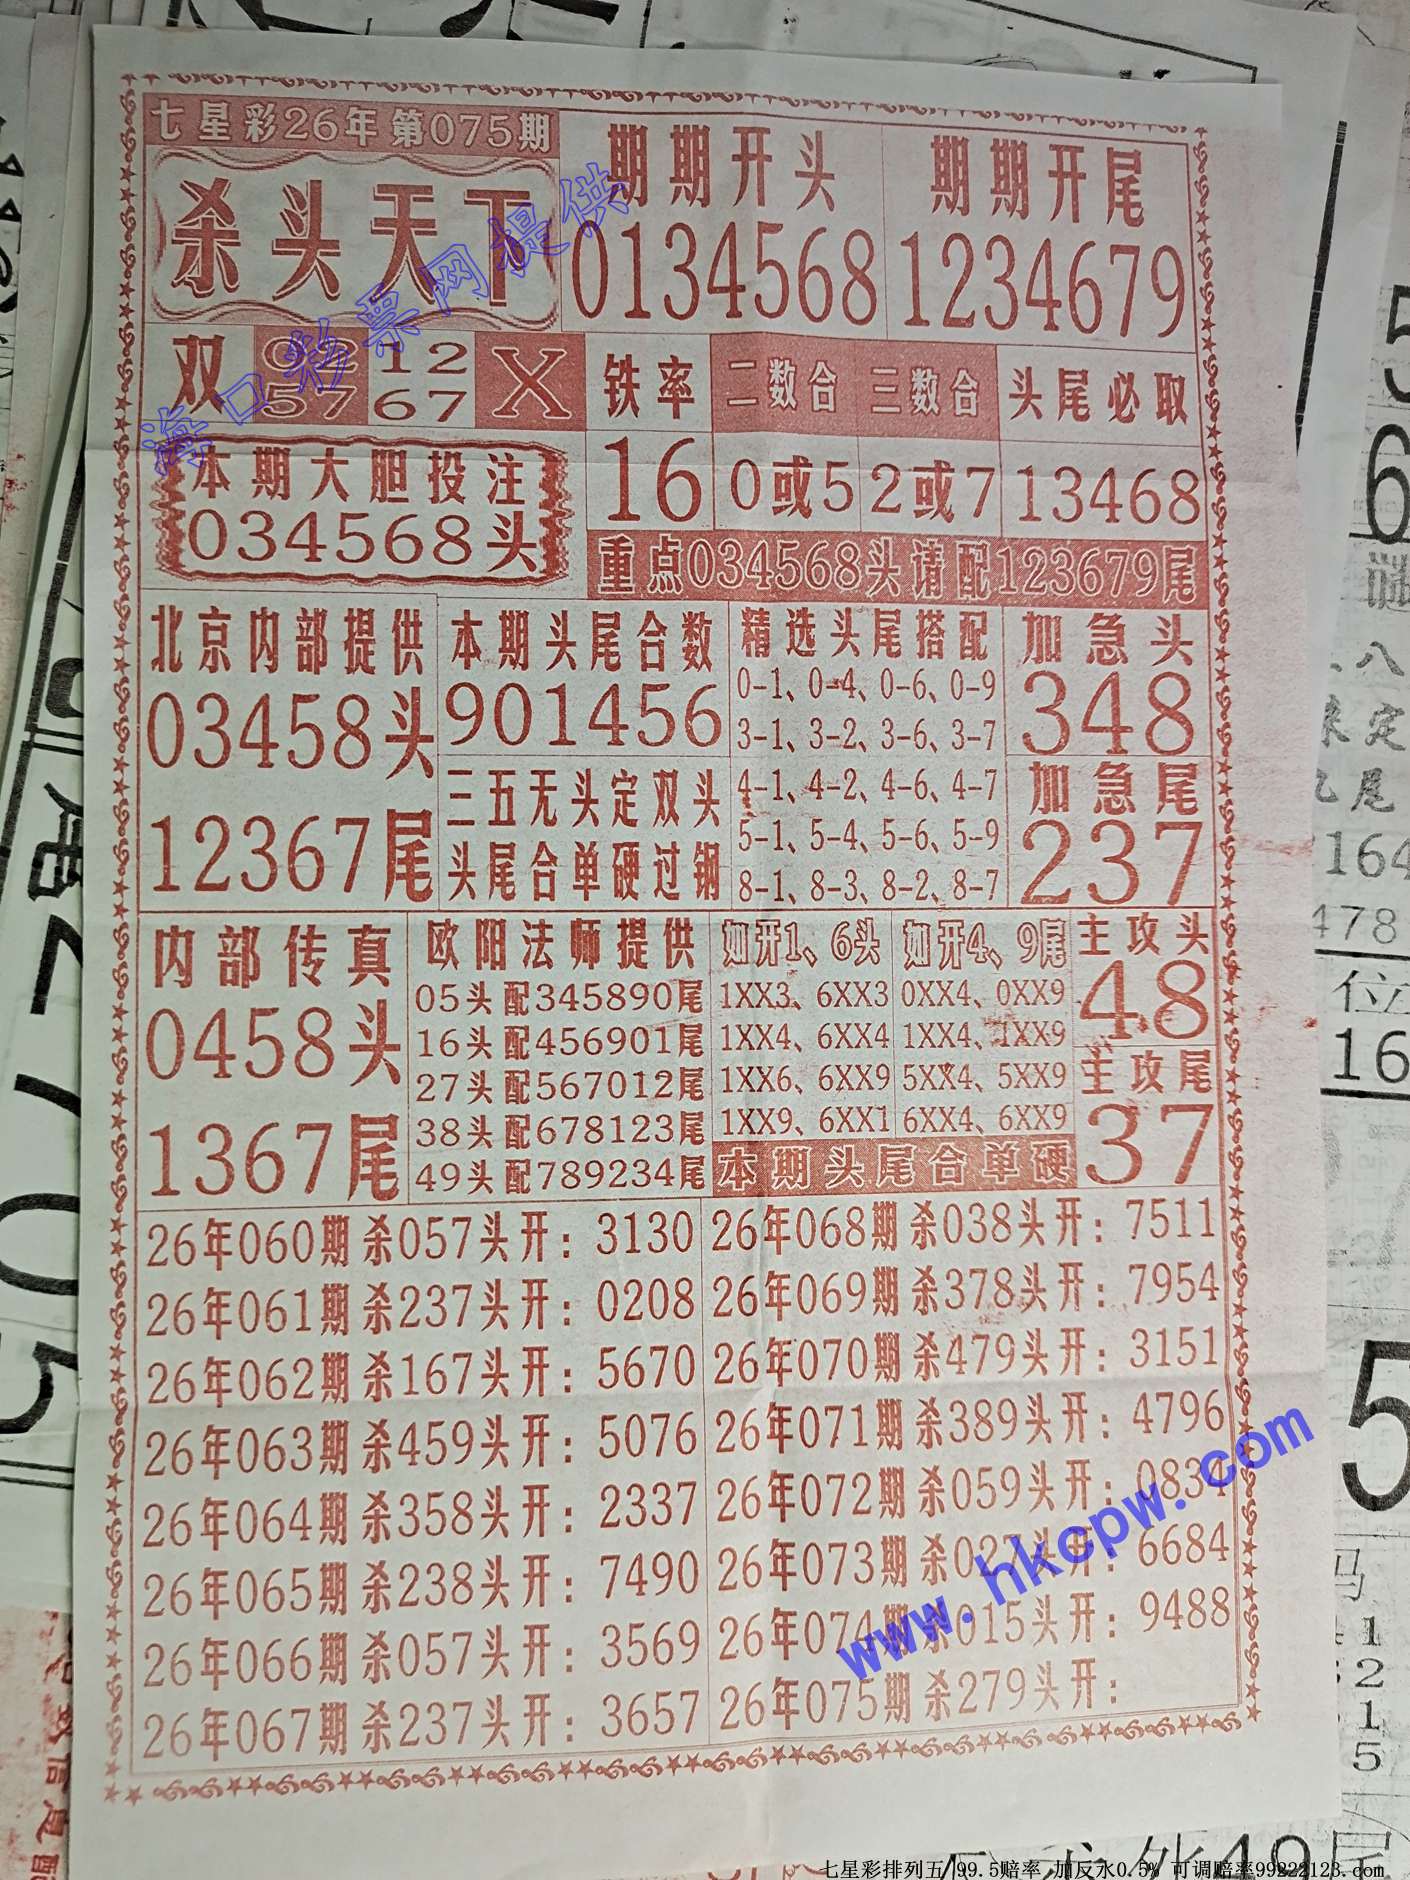 七星彩26年第075期
杀头天下
期期开头
0134568
期期开尾
1234679
双
02 12
57 67
X
铁率
16
二数合
0或5
三数合
2或7
头尾必取
13468
本期大胆投注
034568头
重点034568头请配123679尾
北京内部提供
03458头
12367尾
本期头尾合数
901456
三五无头定双头
头尾合单硬过钢
精选头尾搭配
0-1、0-4、0-6、0-9
3-1、3-2、3-6、3-7
4-1、4-2、4-6、4-7
5-1、5-4、5-6、5-9
8-1、8-3、8-2、8-7
加急头
348
加急尾
237
内部传真
0458头
1367尾
欧阳法师提供
05头配345890尾
16头配456901尾
27头配567012尾
38头配678123尾
49头配789234尾
如开1、6头
1XX3、6XX3
1XX4、6XX4
1XX6、6XX9
1XX9、6XX1
如开4、9尾
0XX4、0XX9
1XX4、1XX9
5XX4、5XX9
6XX4、6XX9
本期头尾合单硬
主攻头
48
主攻尾
37
26年060期杀057头开：3130
26年061期杀237头开：0208
26年062期杀167头开：5670
26年063期杀459头开：5076
26年064期杀358头开：2337
26年065期杀238头开：7490
26年066期杀057头开：3569
26年067期杀237头开：3657
26年068期杀038头开：7511
26年069期杀378头开：7954
26年070期杀479头开：3151
26年071期杀389头开：4796
26年072期杀059头开：0834
26年073期杀027头开：6684
26年074期杀015头开：9488
26年075期杀279头开：
海口彩票网提供
www.hkcpw.com
八
定
尾
164
478
位
16
5
1
2
1
5
49尾
七星彩排列五 99.5赔率 加反水0.5% 可调赔率99222123.com